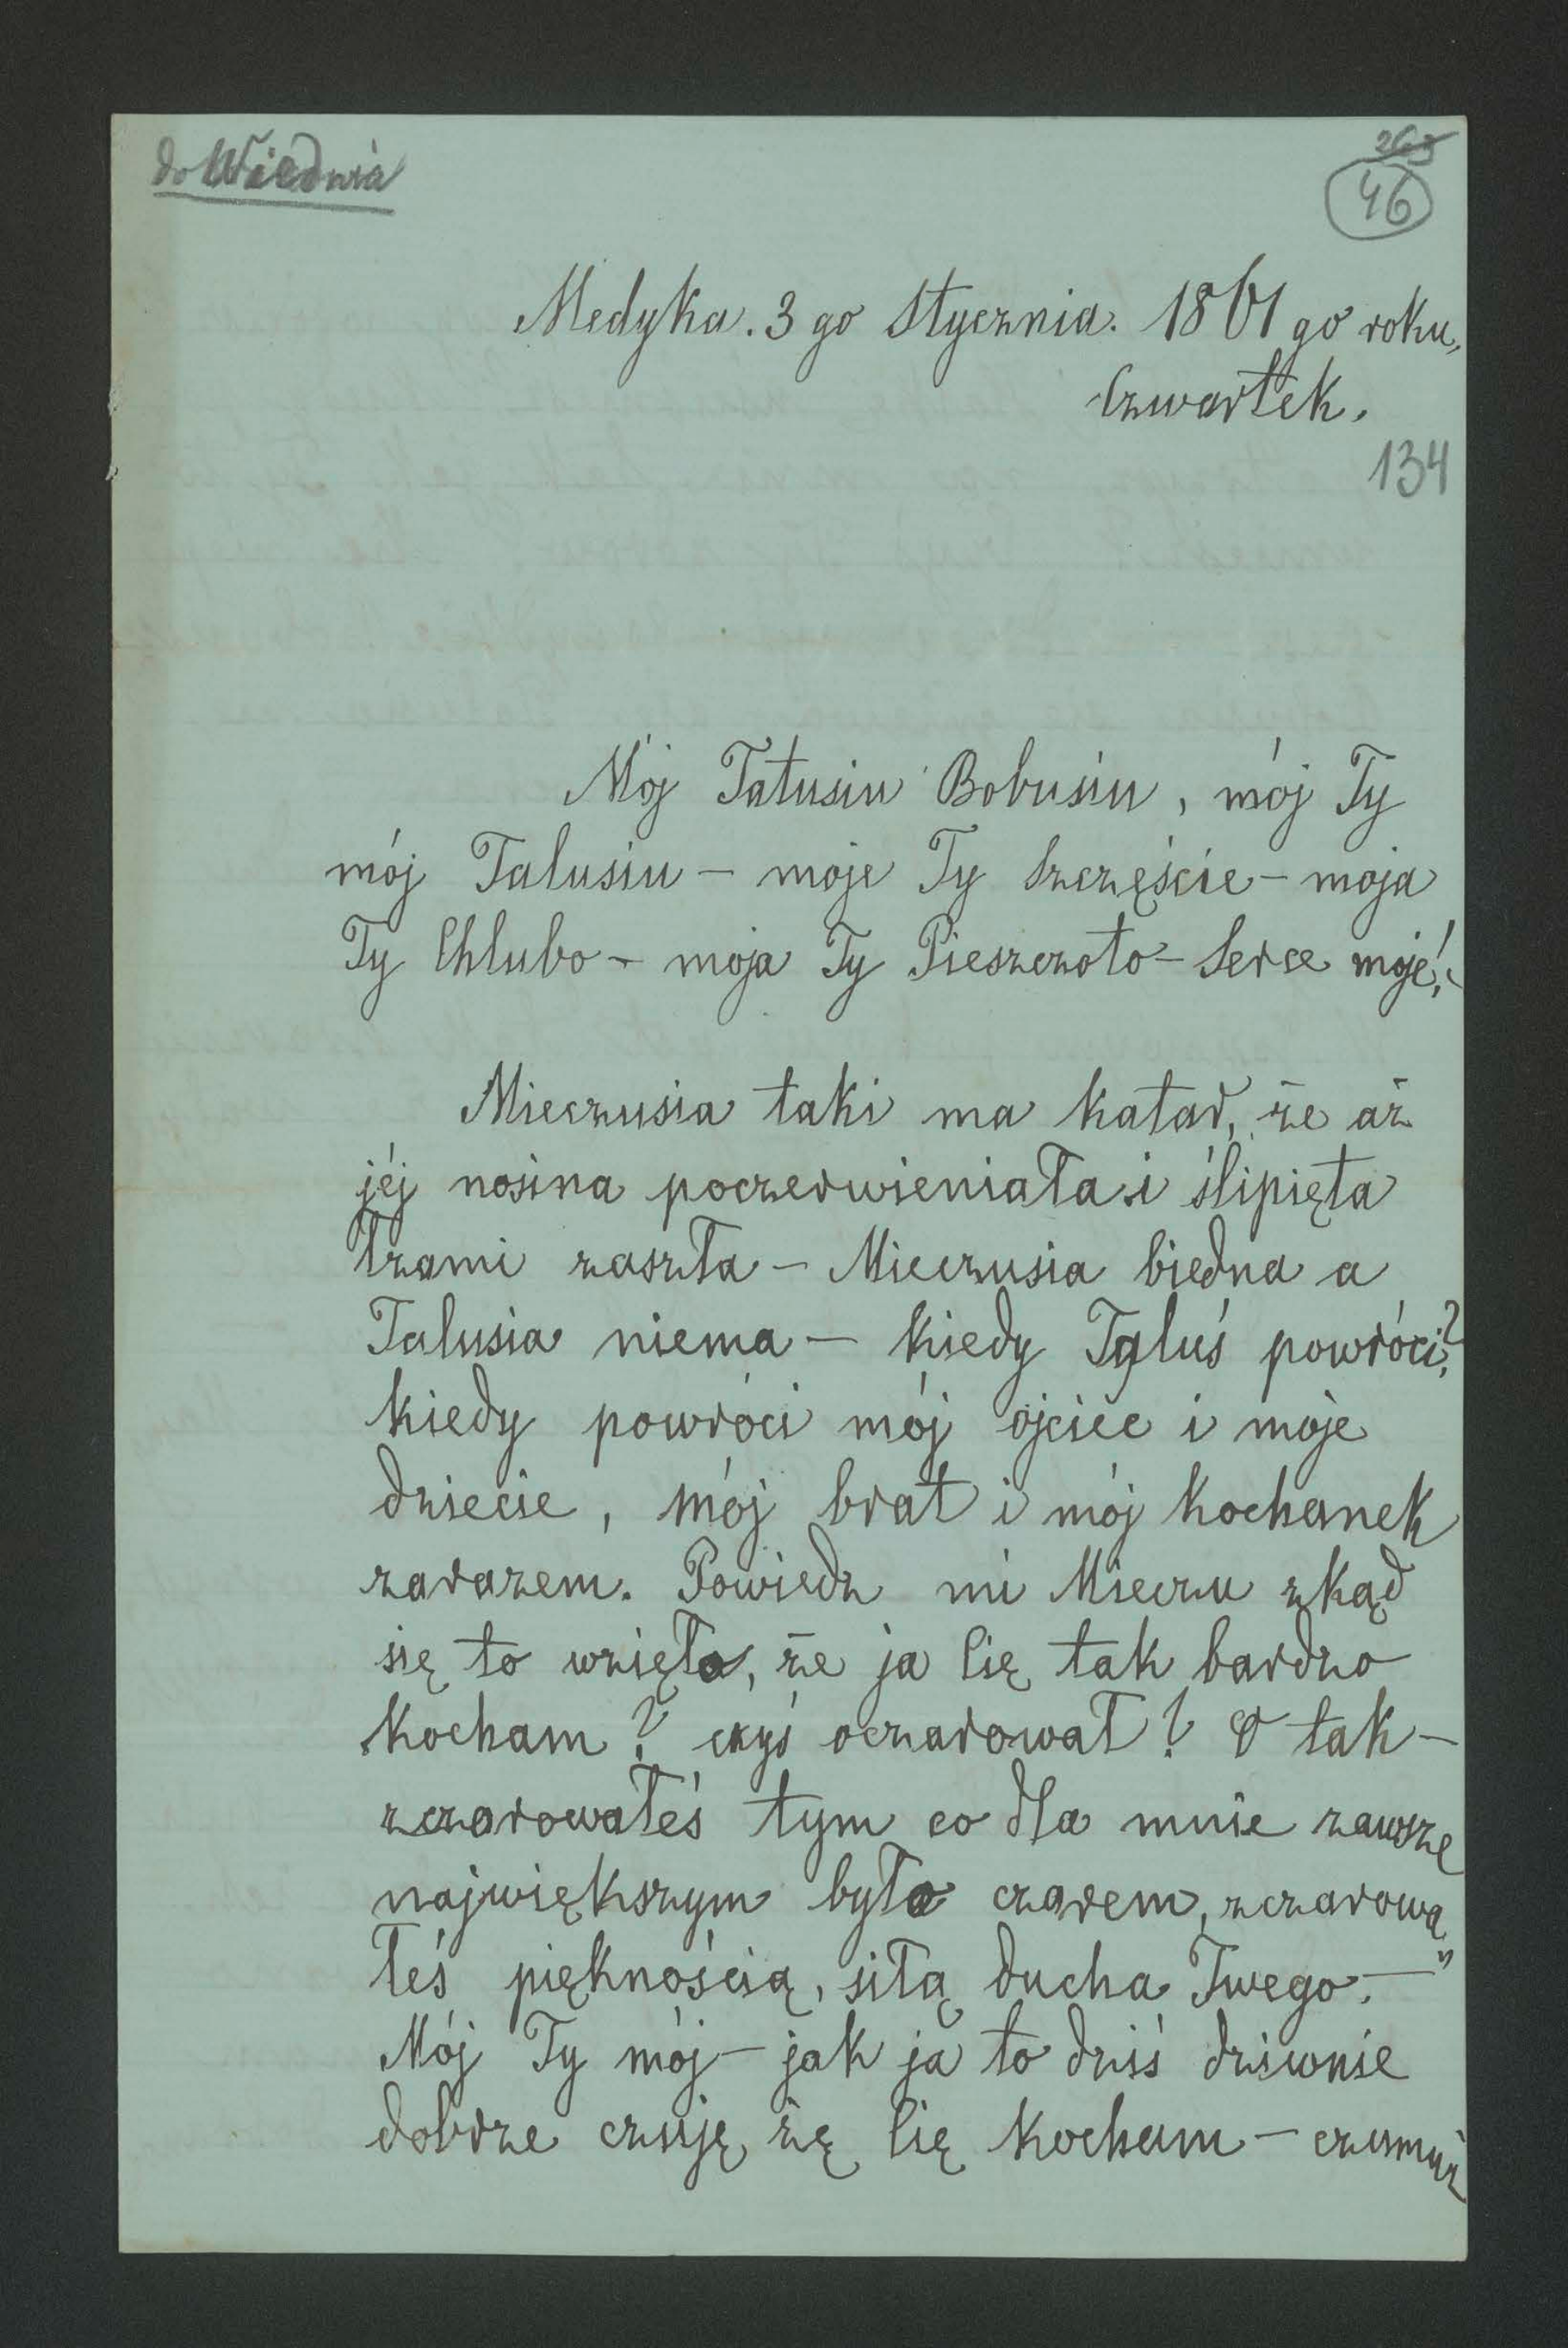 do Wiednia
263
46
Medyka. 3 go Stycznia. 1861 go roku,
Czwartek.
134
Mój Tatusiu Bobusiu, mój Ty
mój Talusiu – moje Ty Szczęście – moja
Ty Chlubo – moja Ty Pieszczoto – Serce moje!
Mieczusia taki ma katar, że aż
jéj nosina poczerwieniała i ślipięta
łzami zaszła – Mieczusia biedna a
Talusia niema – kiedy Taluś powróci?
kiedy powróci mój ojciec i moje
dziecie, mój brat i mój kochanek
zarazem. Powiedz mi Mieczu zkąd
się to wzięło, że ja Cię tak bardzo
kocham? czyś oczarował? O tak –
zczarowałeś tym co dla mnie zawsze
największym było czarem, zczarowa„
łeś pięknością, siłą ducha Twego. –"
Mój Ty mój – jak ja to dziś dziwnie
dobrze czuję żę Cię kocham – czemuż